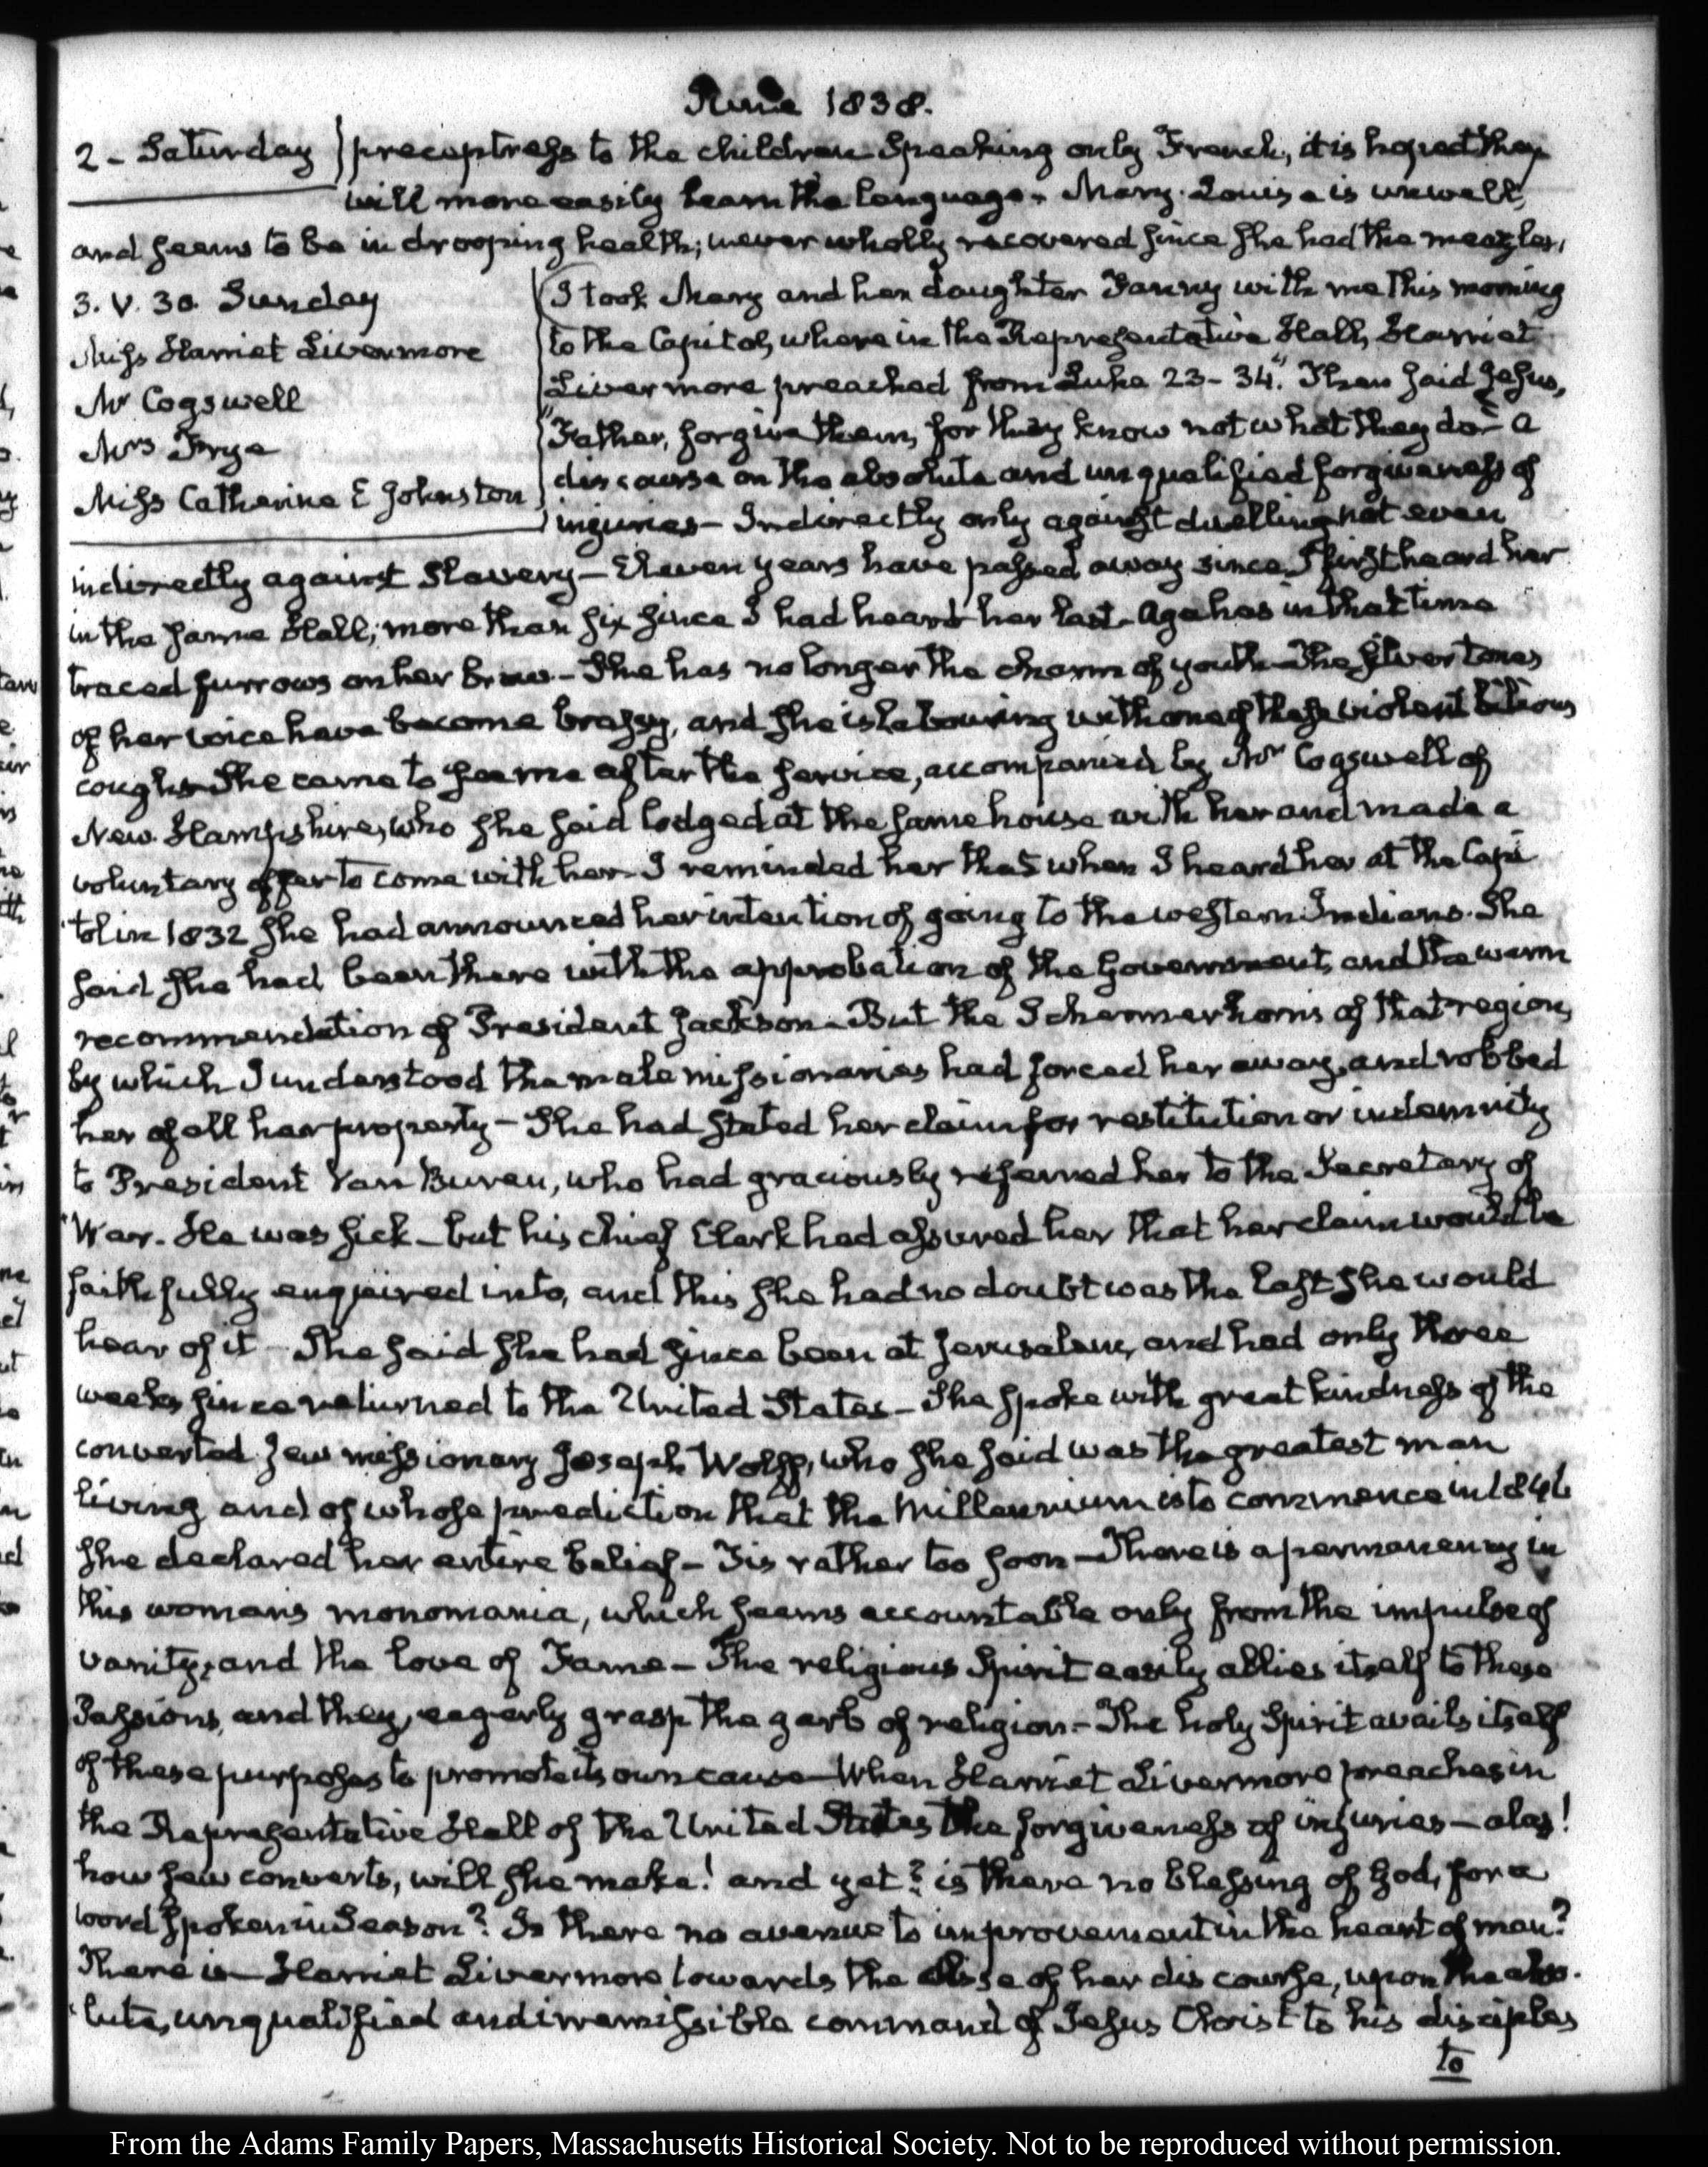 June 1838.
2 - Saturday
preceptress to the children speaking only French, it is hoped they
will more easily learn the language. Mary-Louisa is unwell,
and seems to be in drooping health; never wholly recovered since she had the measles,
3. V. 30. Sunday
Miss Harriet Livermore
Mr Cogswell
Mrs Frye
Miss Catherine E Johnston
I took Mary and her daughter Fanny with me this morning
to the Capitol, where in the Representative Hall, Harriet
Livermore preached from Luke 23-34. "Then said Jesus,
"Father, forgive them, for they know not what they do" - a
discourse on the absolute and unqualified forgiveness of
injuries - Indirectly only against duelling not even
indirectly against Slavery - Eleven years have passed away since I first heard her
in the same Hall; more than six since I had heard her last - Age has in that time
traced furrows on her brow - She has no longer the charm of youth - The silver tones
of her voice have become brassy, and she is labouring with one of these violent bilious
coughs - She came to see me after the service, accompanied by Mr Cogswell of
New-Hampshire, who she said lodged at the same house with her and made a
voluntary offer to come with her. I reminded her that when I heard her at the Capi
tol in 1832 she had announced her intention of going to the western Indians. She
said she had been there with the approbation of the Government, and the warm
recommendation of President Jackson - But the Schermerhorns of that region,
by which I understood the male missionaries had forced her away, and robbed
her of all her property - She had stated her claim for restitution or indemnity
to President Van Buren, who had graciously referred her to the Secretary of
War. He was sick - but his chief Clerk had assured her that her claim would be
faithfully enquired into, and this she had no doubt was the last she would
hear of it - She said she had since been at Jerusalem, and had only three
weeks since returned to the United States - She spoke with great kindness of the
converted Jew missionary Joseph Wolff, who she said was the greatest man
living and of whose prediction that the Millennium is to commence in 1846
she declared her entire belief - Tis rather too soon - There is a permanency in
this woman's monomania, which seems accountable only from the impulse of
vanity, and the love of Fame - The religious Spirit easily allies itself to these
Passions, and they, eagerly grasp the garb of religion - The holy Spirit avails itself
of these purposes to promote its own cause - When Harriet Livermore preaches in
the Representative Hall of the United States the forgiveness of injuries - alas!
how few converts, will she make! and yet? is there no blessing of God, for a
word spoken in Season? Is there no avenue to improvement in the heart of man?
There is - Harriet Livermore towards the close of her discourse, upon the abso-
lute, unqualified and irremissible command of Jesus Christ to his disciples
to
From the Adams Family Papers, Massachusetts Historical Society. Not to be reproduced without permission.